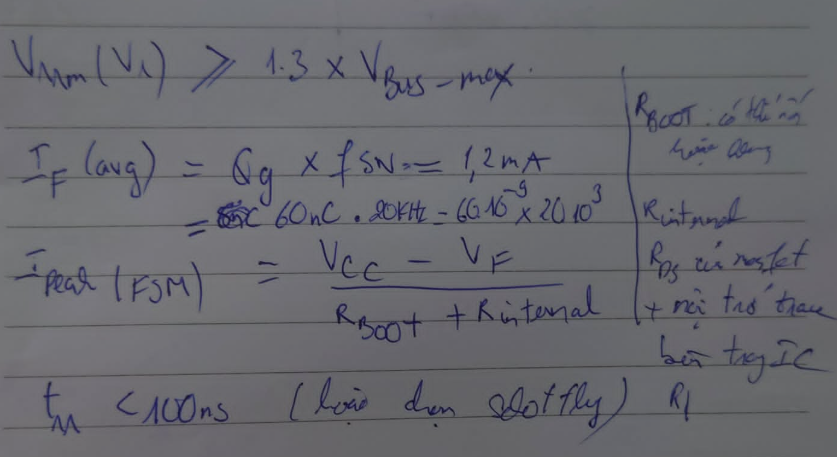 V_RRM (V_R) ≥ 1.3 × V_Bus-max.
I_F (avg) = Qg × fSW = 1,2mA
= 60nC . 20KHz = 60 10^-9 × 20 10^3
I_peak (FSM) = (V_CC - V_F) / (R_BOOT + R_internal)
t_rr < 100ns (hoặc chọn)
R_BOOT : có thể có
hoặc không
R_internal
R_DS của mosfet
+ nội trở trace
bên trg IC